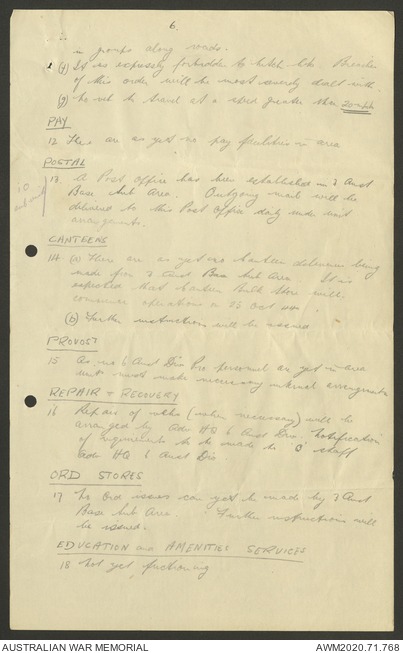 6.
in groups along roads.
(f) It is expressly forbidden to hitch hike. Breaches
of this order will be most severely dealt with.
(g) to travel at a speed greater than 20 mph
PAY
12 There are as yet no pay facilities in area
POSTAL
13. A Post Office has been established in 2 Aust
Base Sub Area. Outgoing mail will be
delivered to this Post Office daily under unit
arrangements.
CANTEENS
14 (a) There are as yet no canteen deliveries being
made from 2 Aust Base Sub Area. It is
expected that Canteen Bulk Store will
commence operations on 25 Oct
(b) Further instructions will be issued
PROVOST
15 As no 6 Aust Div Pro personnel as yet in area
units must make necessary internal arrangements
REPAIR + RECOVERY
16 Repairs of vehs (when necessary) will be
arranged by Adv HQ 6 Aust Div. Notification
of requirements to be made to 'Q' staff
Adv HQ 6 Aust Div.
ORD STORES
17 No Ord issues can yet be made by 2 Aust
Base Sub Area. Further instructions will
be issued.
EDUCATION and AMENITIES SERVICES
18 Not yet functioning
AUSTRALIAN WAR MEMORIAL
AWM2020.71.768